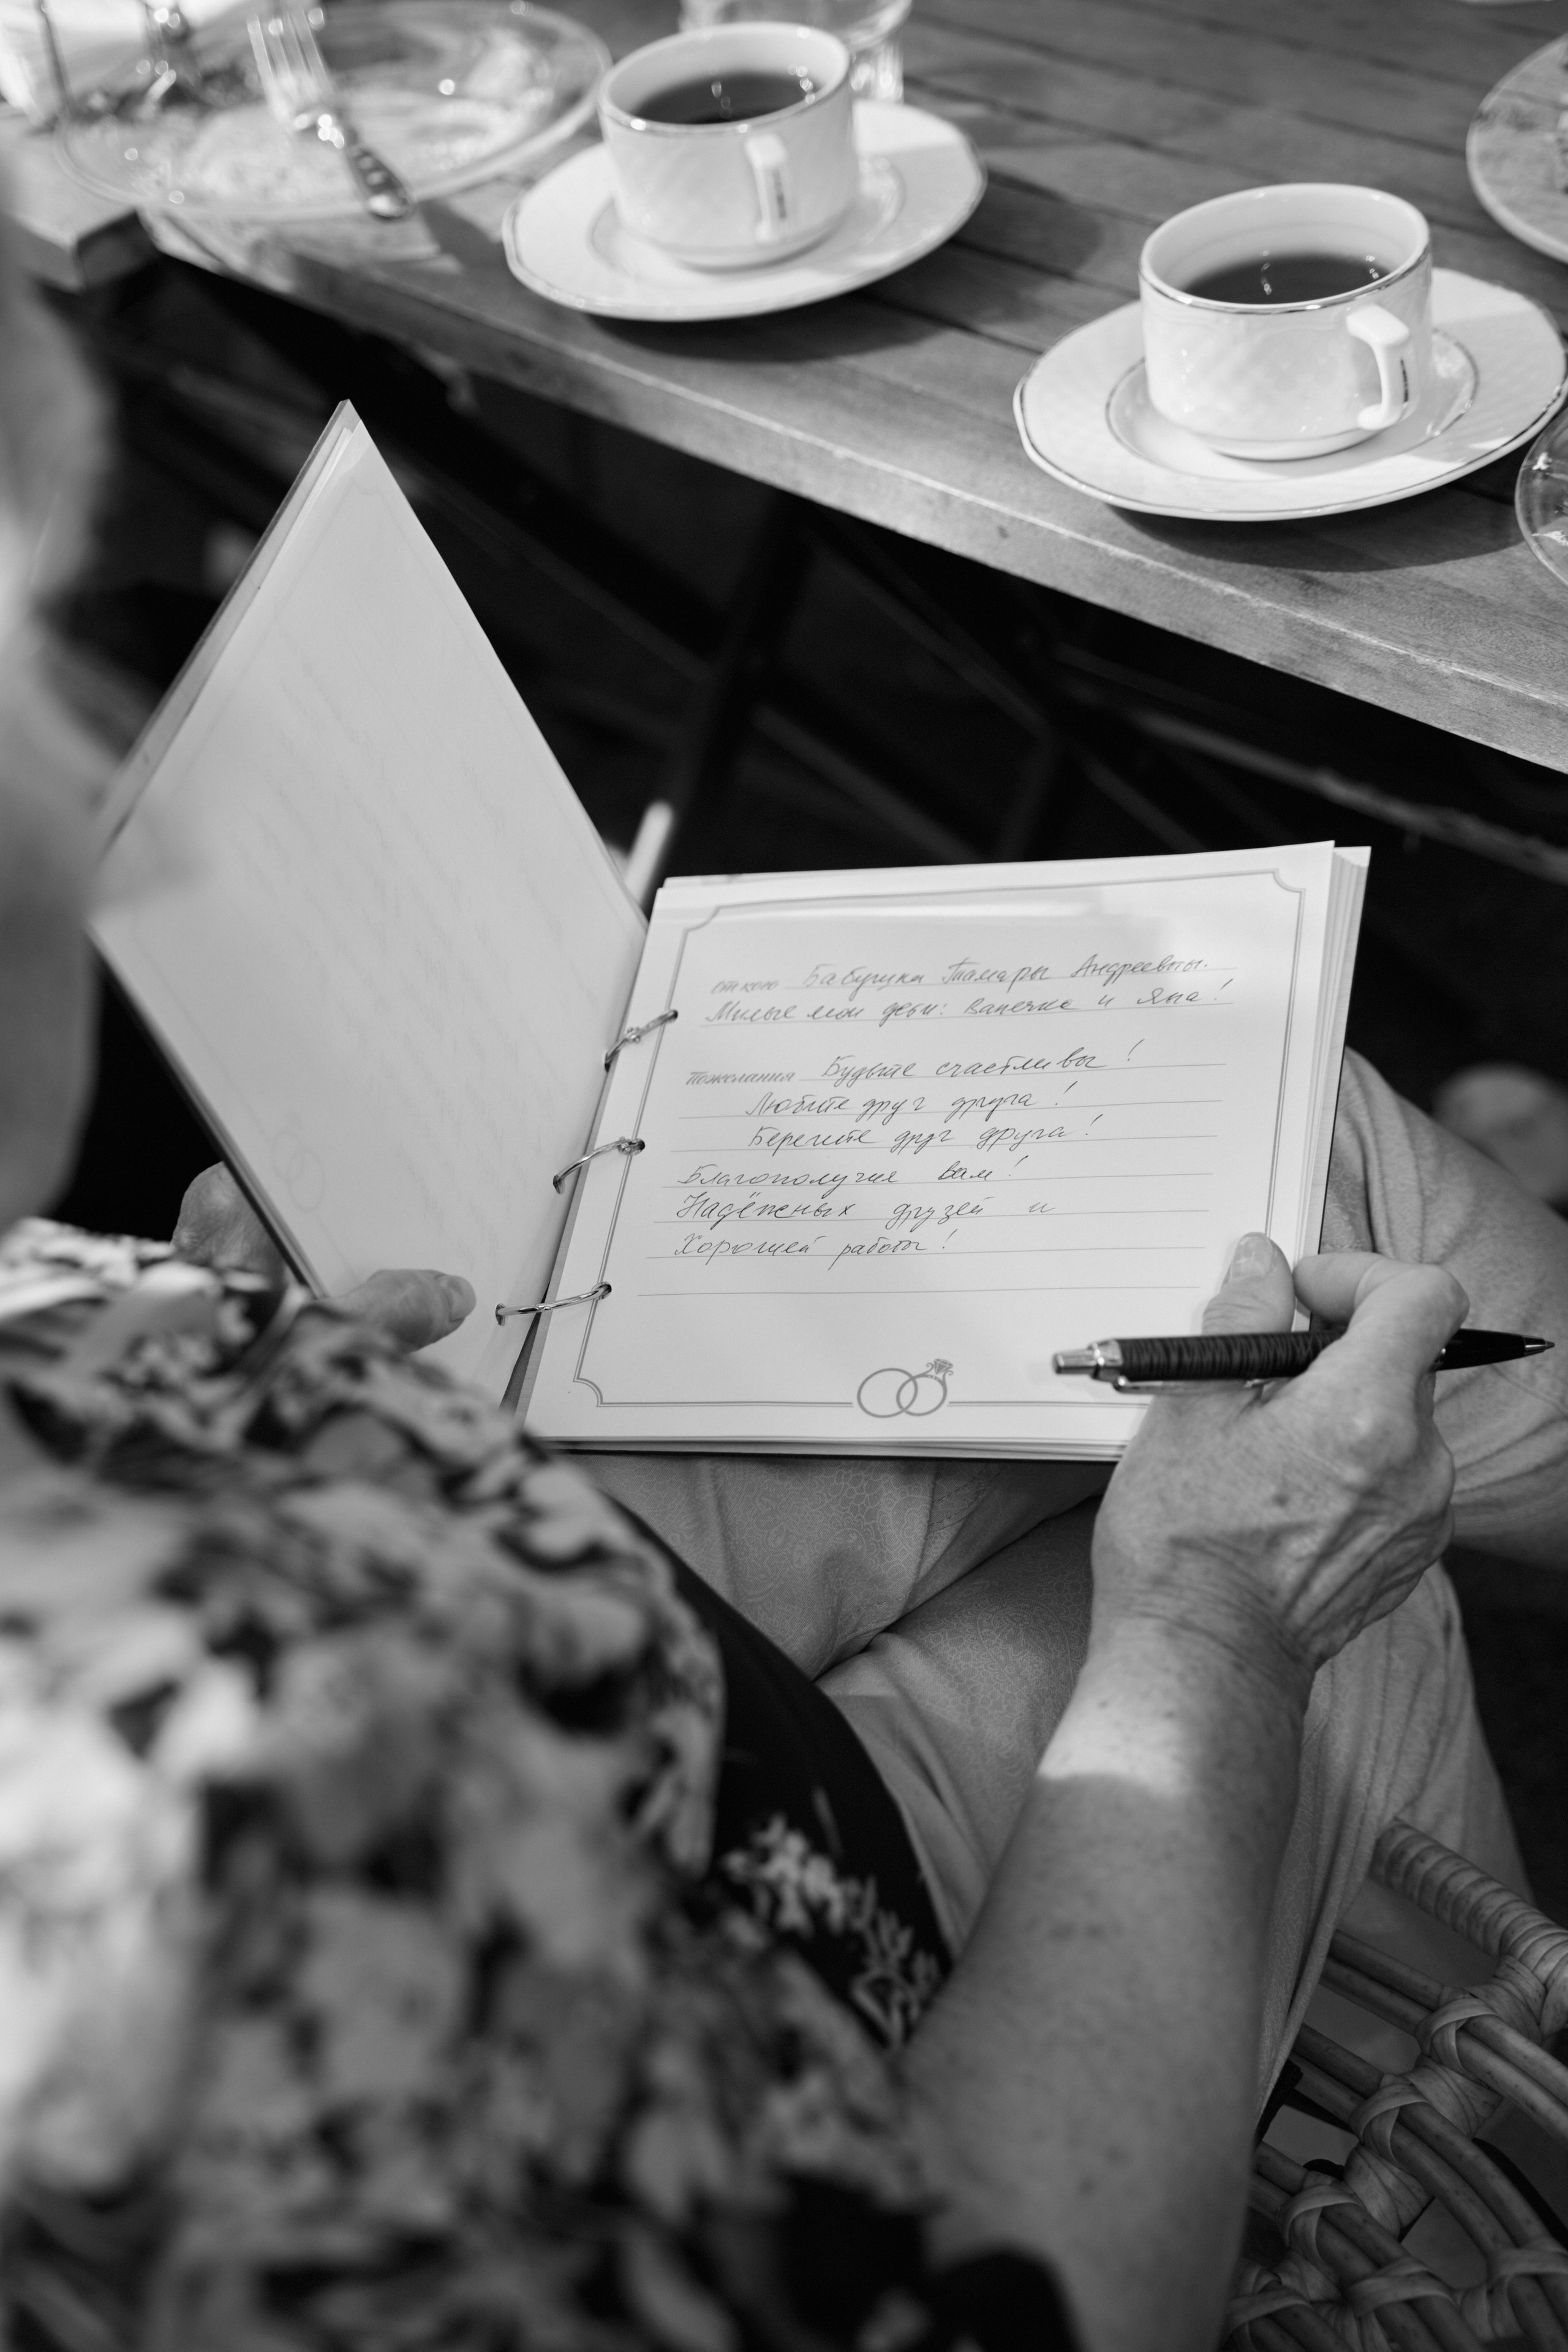 от кого Бабушки Тамары Андреевны.
Милые мои дети: Ванечка и Яна!
Пожелания Будьте счастливы!
Любите друг друга!
Берегите друг друга!
Благополучия вам!
Надёжных друзей и
Хорошей работы!